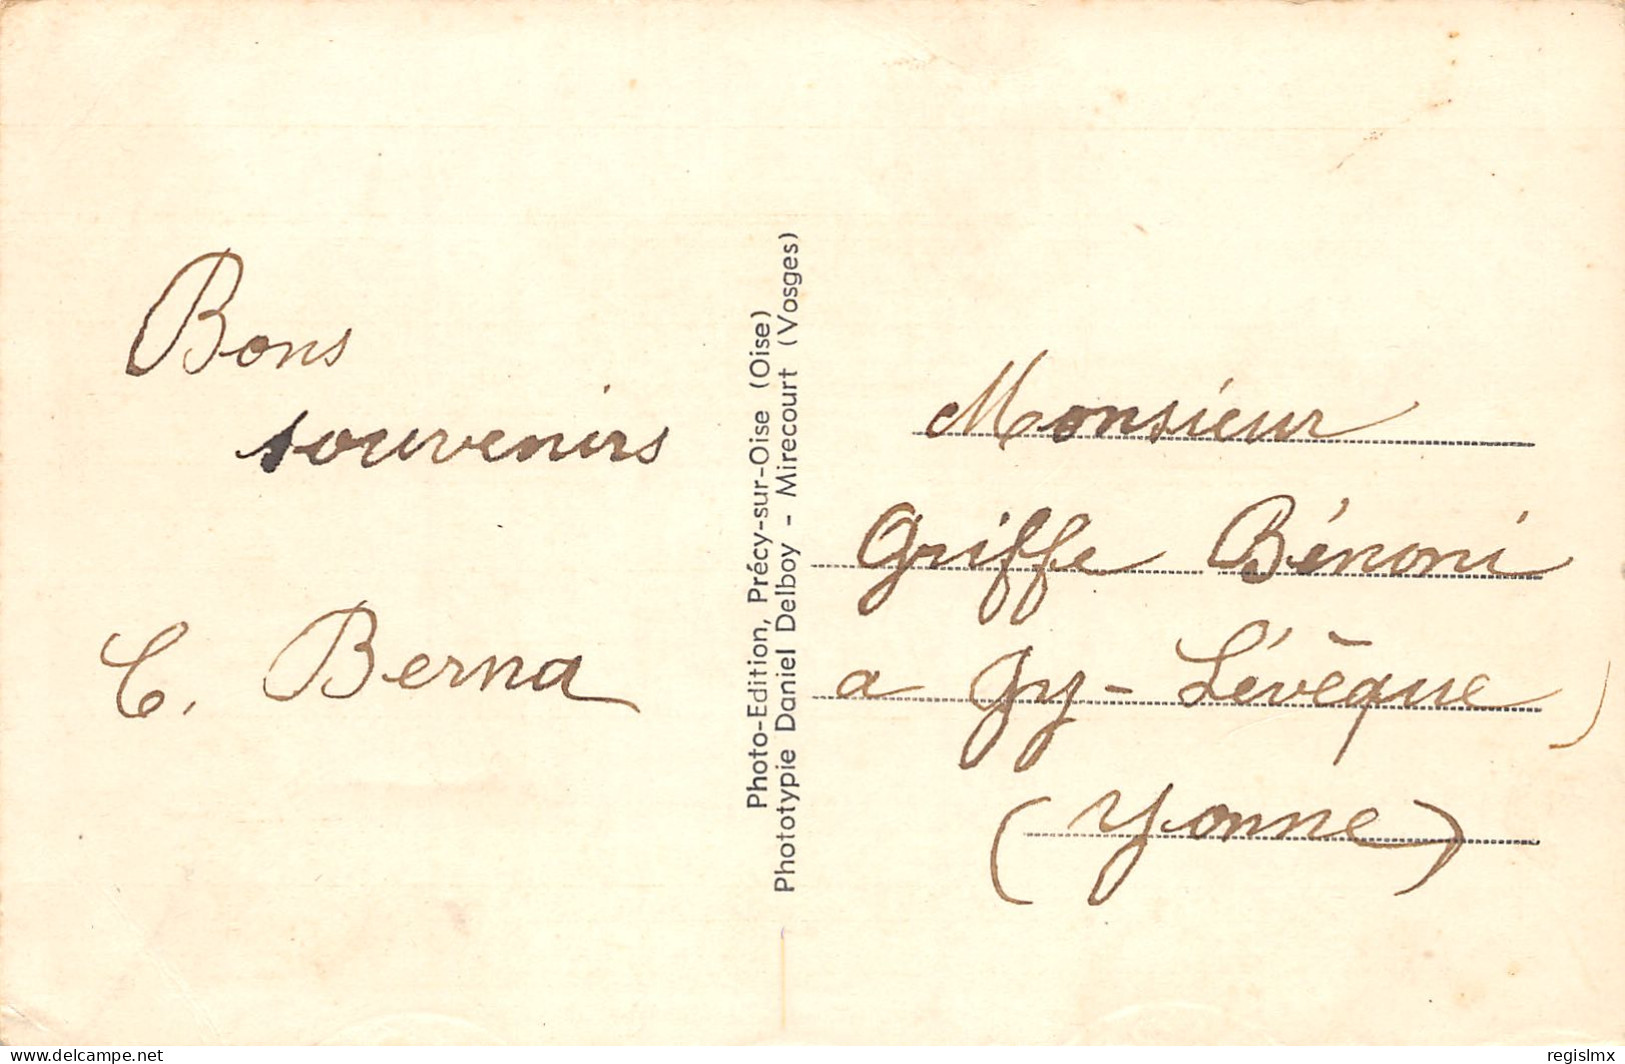 Bons
souvenirs
C. Berna
Photo-Edition, Précy-sur-Oise (Oise)
Phototypie Daniel Delboy - Mirecourt (Vosges)
Monsieur
Griffe Bénoni
a Gy-Lévêque
(Yonne)
www.delcampe.net
regislmx